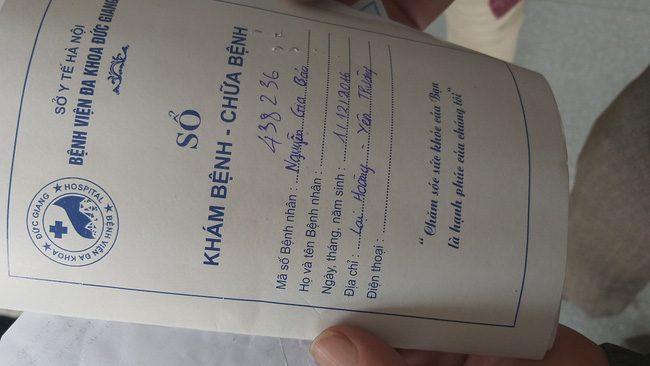 SỞ Y TẾ HÀ NỘI
BỆNH VIỆN ĐA KHOA ĐỨC GIANG
ĐỨC GIANG ★ HOSPITAL ★ BỆNH VIỆN ĐA KHOA ★
SỔ
KHÁM BỆNH - CHỮA BỆNH
Mã số Bệnh nhân : 438236
Họ và tên Bệnh nhân : Nguyễn Gia Bảo
Ngày, tháng, năm sinh : 11/12/2016
Địa chỉ : Lại Hoàng - Yên Thường
Điện thoại :
"Chăm sóc sức khỏe của Bạn
là hạnh phúc của chúng tôi"